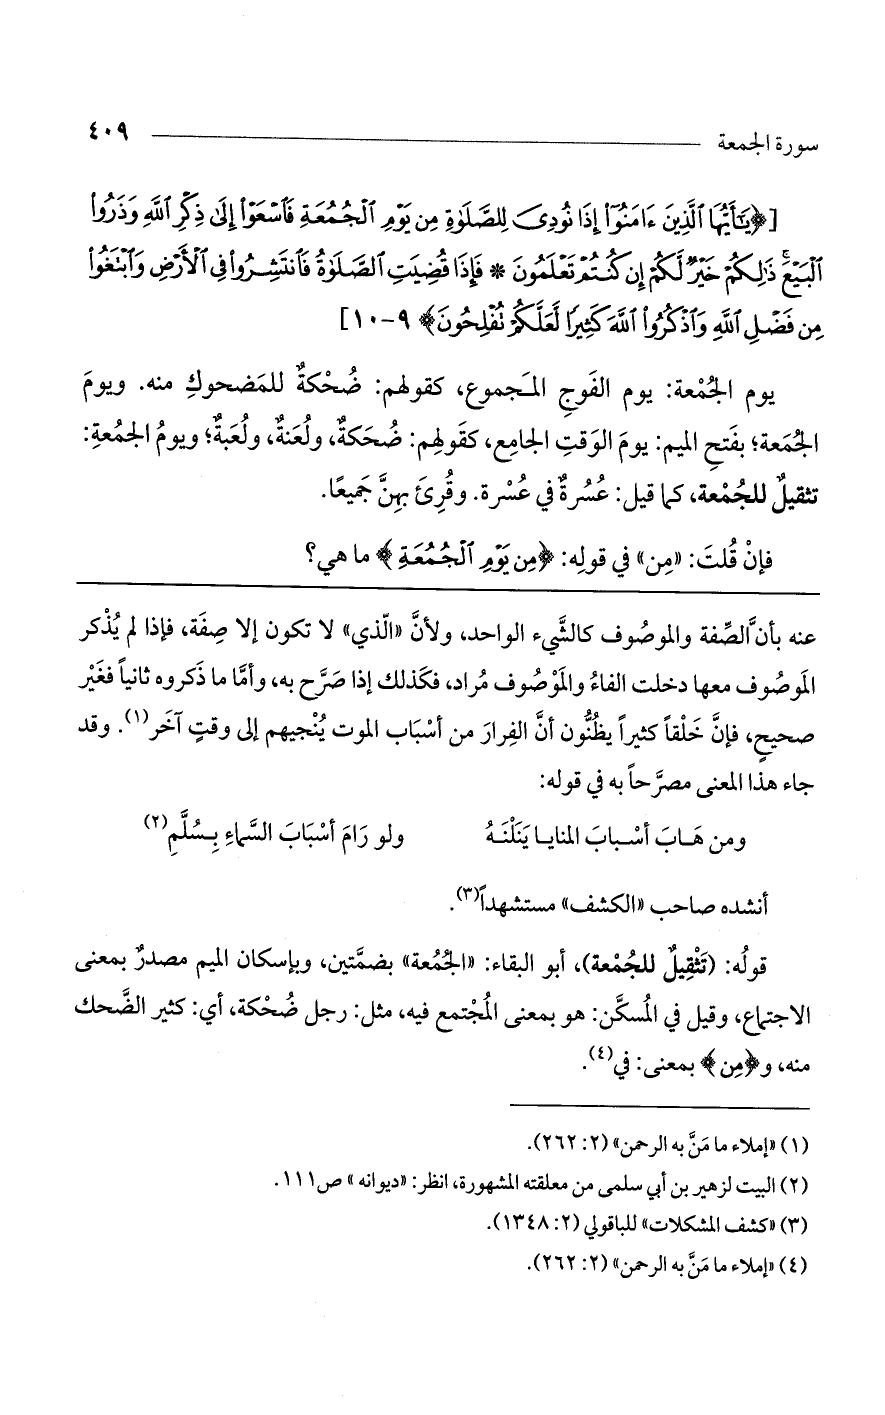 سورة الجمعة ٤٠٩
[﴿يَٰٓأَيُّهَا ٱلَّذِينَ ءَامَنُوٓا۟ إِذَا نُودِىَ لِلصَّلَوٰةِ مِن يَوْمِ ٱلْجُمُعَةِ فَٱسْعَوْا۟ إِلَىٰ ذِكْرِ ٱللَّهِ وَذَرُوا۟
ٱلْبَيْعَ ۚ ذَٰلِكُمْ خَيْرٌ لَّكُمْ إِن كُنتُمْ تَعْلَمُونَ * فَإِذَا قُضِيَتِ ٱلصَّلَوٰةُ فَٱنتَشِرُوا۟ فِى ٱلْأَرْضِ وَٱبْتَغُوا۟
مِن فَضْلِ ٱللَّهِ وَٱذْكُرُوا۟ ٱللَّهَ كَثِيرًا لَّعَلَّكُمْ تُفْلِحُونَ﴾ ٩-١٠]
يوم الجُمْعة: يوم الفَوجِ المَجموع، كقولهم: ضُحْكةٌ للمَضحوكِ منه. ويومَ
الجُمَعة؛ بفَتحِ الميم: يومَ الوَقتِ الجامِع، كقَولِهم: ضُحَكةٌ، ولُعَنةٌ، ولُعَبةٌ؛ ويومُ الجمُعةِ:
تثقيلٌ للجُمْعة، كما قيل: عُسُرةٌ في عُسْرة. وقُرِئَ بهِنَّ جَميعًا.
فإنْ قُلتَ: «مِن» في قولِه: ﴿مِن يَوْمِ ٱلْجُمُعَةِ﴾ ما هي؟
عنه بأن الصِّفة والموصُوف كالشَّيء الواحد، ولأنَّ «الّذي» لا تكون إلا صِفَة، فإذا لم يُذْكر
المَوصُوف معها دخلت الفاءُ والمَوْصُوف مُراد، فكَذلك إذا صَرَّح به، وأمَّا ما ذَكروه ثانياً فغَيْر
صحيحٍ، فإنَّ خَلْقاً كثيراً يظُنُّون أنَّ الفِرارَ من أسْبَاب الموت يُنْجيهم إلى وقتٍ آخَر(١). وقد
جاء هذا المعنى مصرَّحاً به في قوله:
ومن هَـابَ أسْـبابَ المنايـا يَنَلْنَـهُ ولو رَامَ أسْبَابَ السَّماءِ بِـسُلَّمِ(٢)
أنشده صاحب «الكشف» مستشهداً(٣).
قولُه: (تَثْقِيلٌ للجُمْعة)، أبو البقاء: «الجُمُعة» بضمَّتين، وبإسكان الميم مصدرٌ بمعنى
الاجتماع، وقيل في المُسكَّن: هو بمعنى المُجْتمع فيه، مثل: رجل ضُحْكة، أي: كثير الضَّحك
منه، و﴿مِن﴾ بمعنى: في(٤).
(١) «إملاء ما مَنَّ به الرحمن» (٢: ٢٦٢).
(٢) البيت لزهير بن أبي سلمى من معلقته المشهورة، انظر: «ديوانه» ص١١١.
(٣) «كشف المشكلات» للباقولي (٢: ١٣٤٨).
(٤) «إملاء ما مَنَّ به الرحمن» (٢: ٢٦٢).